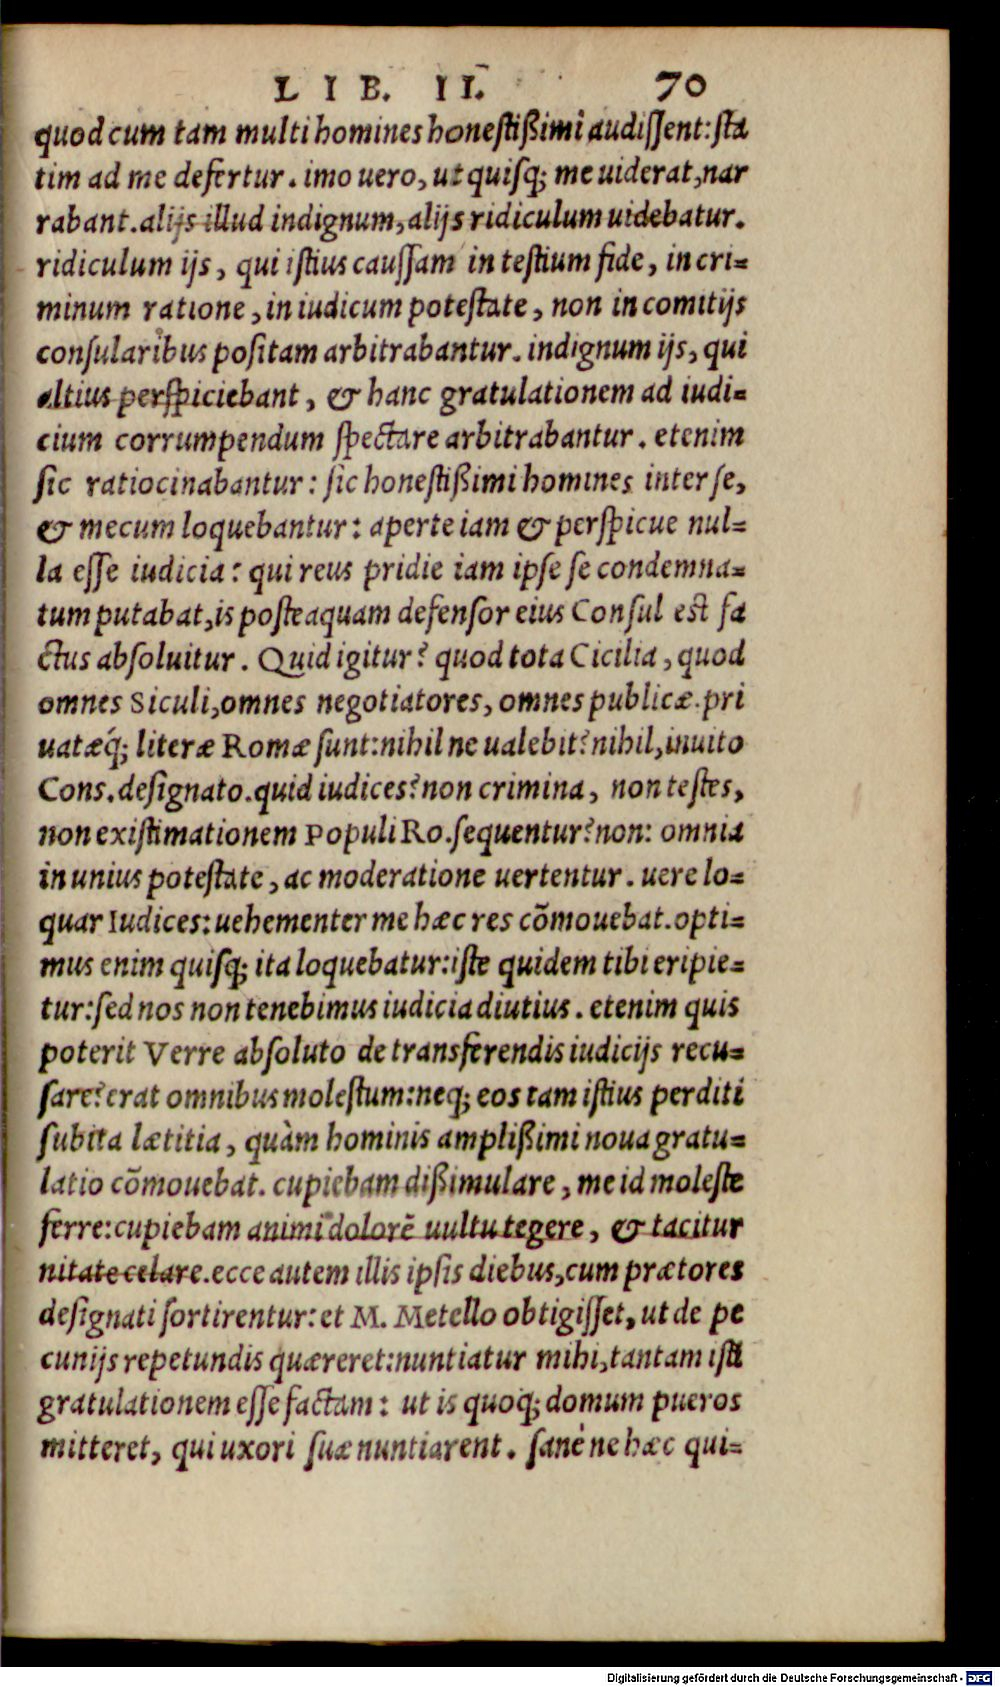 LIB. II. 70
quod cum tam multi homines honestißimi audissent: sta
tim ad me defertur. imo uero, ut quisq; me uiderat, nar
rabant. alijs illud indignum, alijs ridiculum uidebatur.
ridiculum ijs, qui istius caussam in testium fide, in cri=
minum ratione, in iudicum potestate, non in comitijs
consularibus positam arbitrabantur. indignum ijs, qui
altius perspiciebant, & hanc gratulationem ad iudi=
cium corrumpendum spectare arbitrabantur. etenim
sic ratiocinabantur: sic honestißimi homines inter se,
& mecum loquebantur: aperte iam & perspicue nul=
la esse iudicia: qui reus pridie iam ipse se condemna=
tum putabat, is posteaquam defensor eius Consul est fa
ctus absoluitur. Quid igitur? quod tota Cicilia, quod
omnes Siculi, omnes negotiatores, omnes publicæ. pri
uatæq́; literæ Romæ sunt: nihil ne ualebit? nihil, inuito
Cons. designato. quid iudices? non crimina, non testes,
non existimationem Populi Ro. sequentur? non: omnia
in unius potestate, ac moderatione uertentur. uere lo=
quar Iudices: uehementer me hæc res cõmouebat. opti=
mus enim quisq; ita loquebatur: iste quidem tibi eripie=
tur: sed nos non tenebimus iudicia diutius. etenim quis
poterit Verre absoluto de transferendis iudicijs recu=
sare? erat omnibus molestum: neq; eos tam istius perditi
subita lætitia, quàm hominis amplißimi noua gratu=
latio cõmouebat. cupiebam dißimulare, me id moleste
ferre: cupiebam animi dolorẽ uultu tegere, & tacitur
nitate celare. ecce autem illis ipsis diebus, cum prætores
designati sortirentur: et M. Metello obtigisset, ut de pe
cunijs repetundis quæreret: nuntiatur mihi, tantam isti
gratulationem esse factam: ut is quoq; domum pueros
mitteret, qui uxori suæ nuntiarent. sanè ne hæc qui=
Digitalisierung gefördert durch die Deutsche Forschungsgemeinschaft - DFG